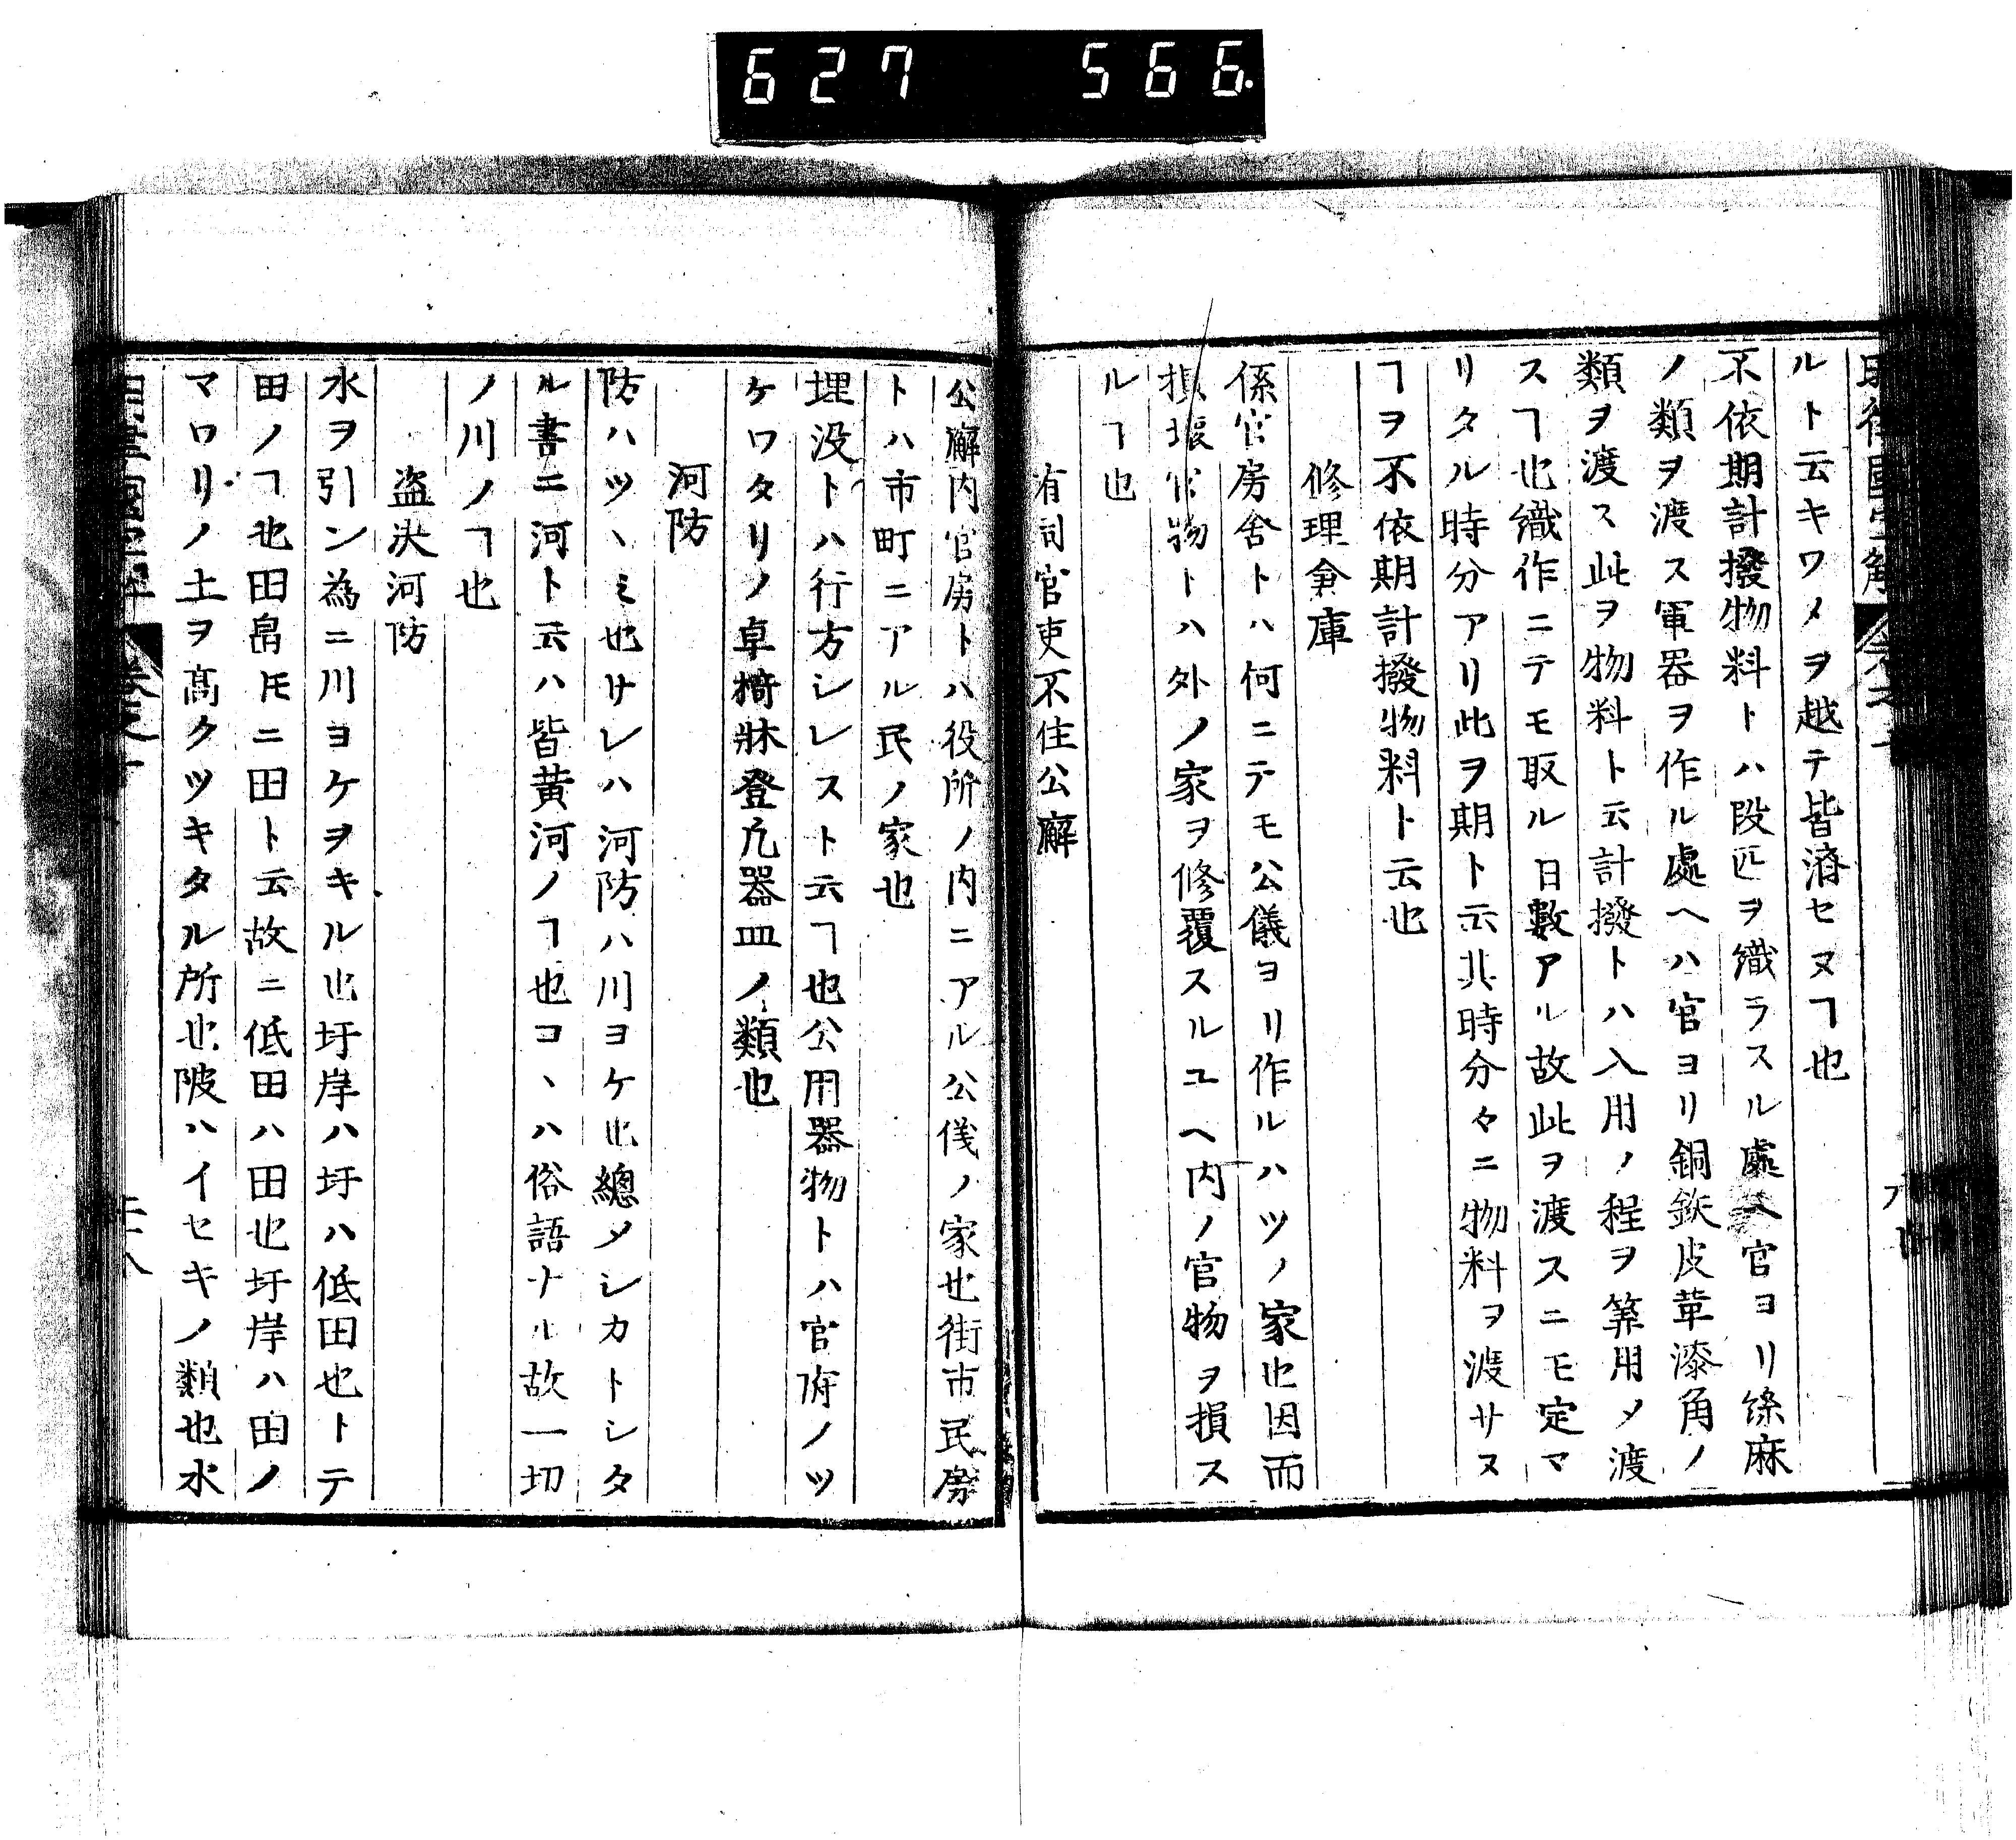 627 566
ルト云キワメヲ越テ皆済セヌヿ也
不依期計撥物料トハ段匹ヲ織ラスル處ヘ官ヨリ絲麻
ノ類ヲ渡ス軍器ヲ作ル處ヘハ官ヨリ銅鉄皮革漆角ノ
類ヲ渡ス此ヲ物料ト云計撥トハ入用ノ程ヲ算用メ渡
スヿ也織作ニテモ取ル日數アル故此ヲ渡スニモ定マ
リタル時分アリ此ヲ期ト云其時分々ニ物料ヲ渡サヌ
ヿヲ不依期計撥物料ト云也
修理倉庫
係官房舎トハ何ニテモ公儀ヨリ作ルハツノ家也因而
損壊官物トハ外ノ家ヲ修覆スルユヘ内ノ官物ヲ損ス
ルヿ也
有司官吏不住公廨
公廨内官房トハ役所ノ内ニアル公儀ノ家也街市民房
トハ市町ニアル民ノ家也
埋没トハ行方シレスト云ヿ也公用器物トハ官府ノツ
ケワタリノ卓椅牀登凢器皿ノ類也
河防
防ハツヽミ也サレハ河防ハ川ヨケ也總メシカトシタ
ル書ニ河ト云ハ皆黄河ノヿ也コヽハ俗語ナル故一切
ノ川ノヿ也
盗决河防
水ヲ引ン為ニ川ヨケヲキル也圩岸ハ圩ハ低田也トテ
田ノヿ也田畠𪜈ニ田ト云故ニ低田ハ田也圩岸ハ田ノ
マワリノ土ヲ髙クツキタル所也陂ハイセキノ類也水